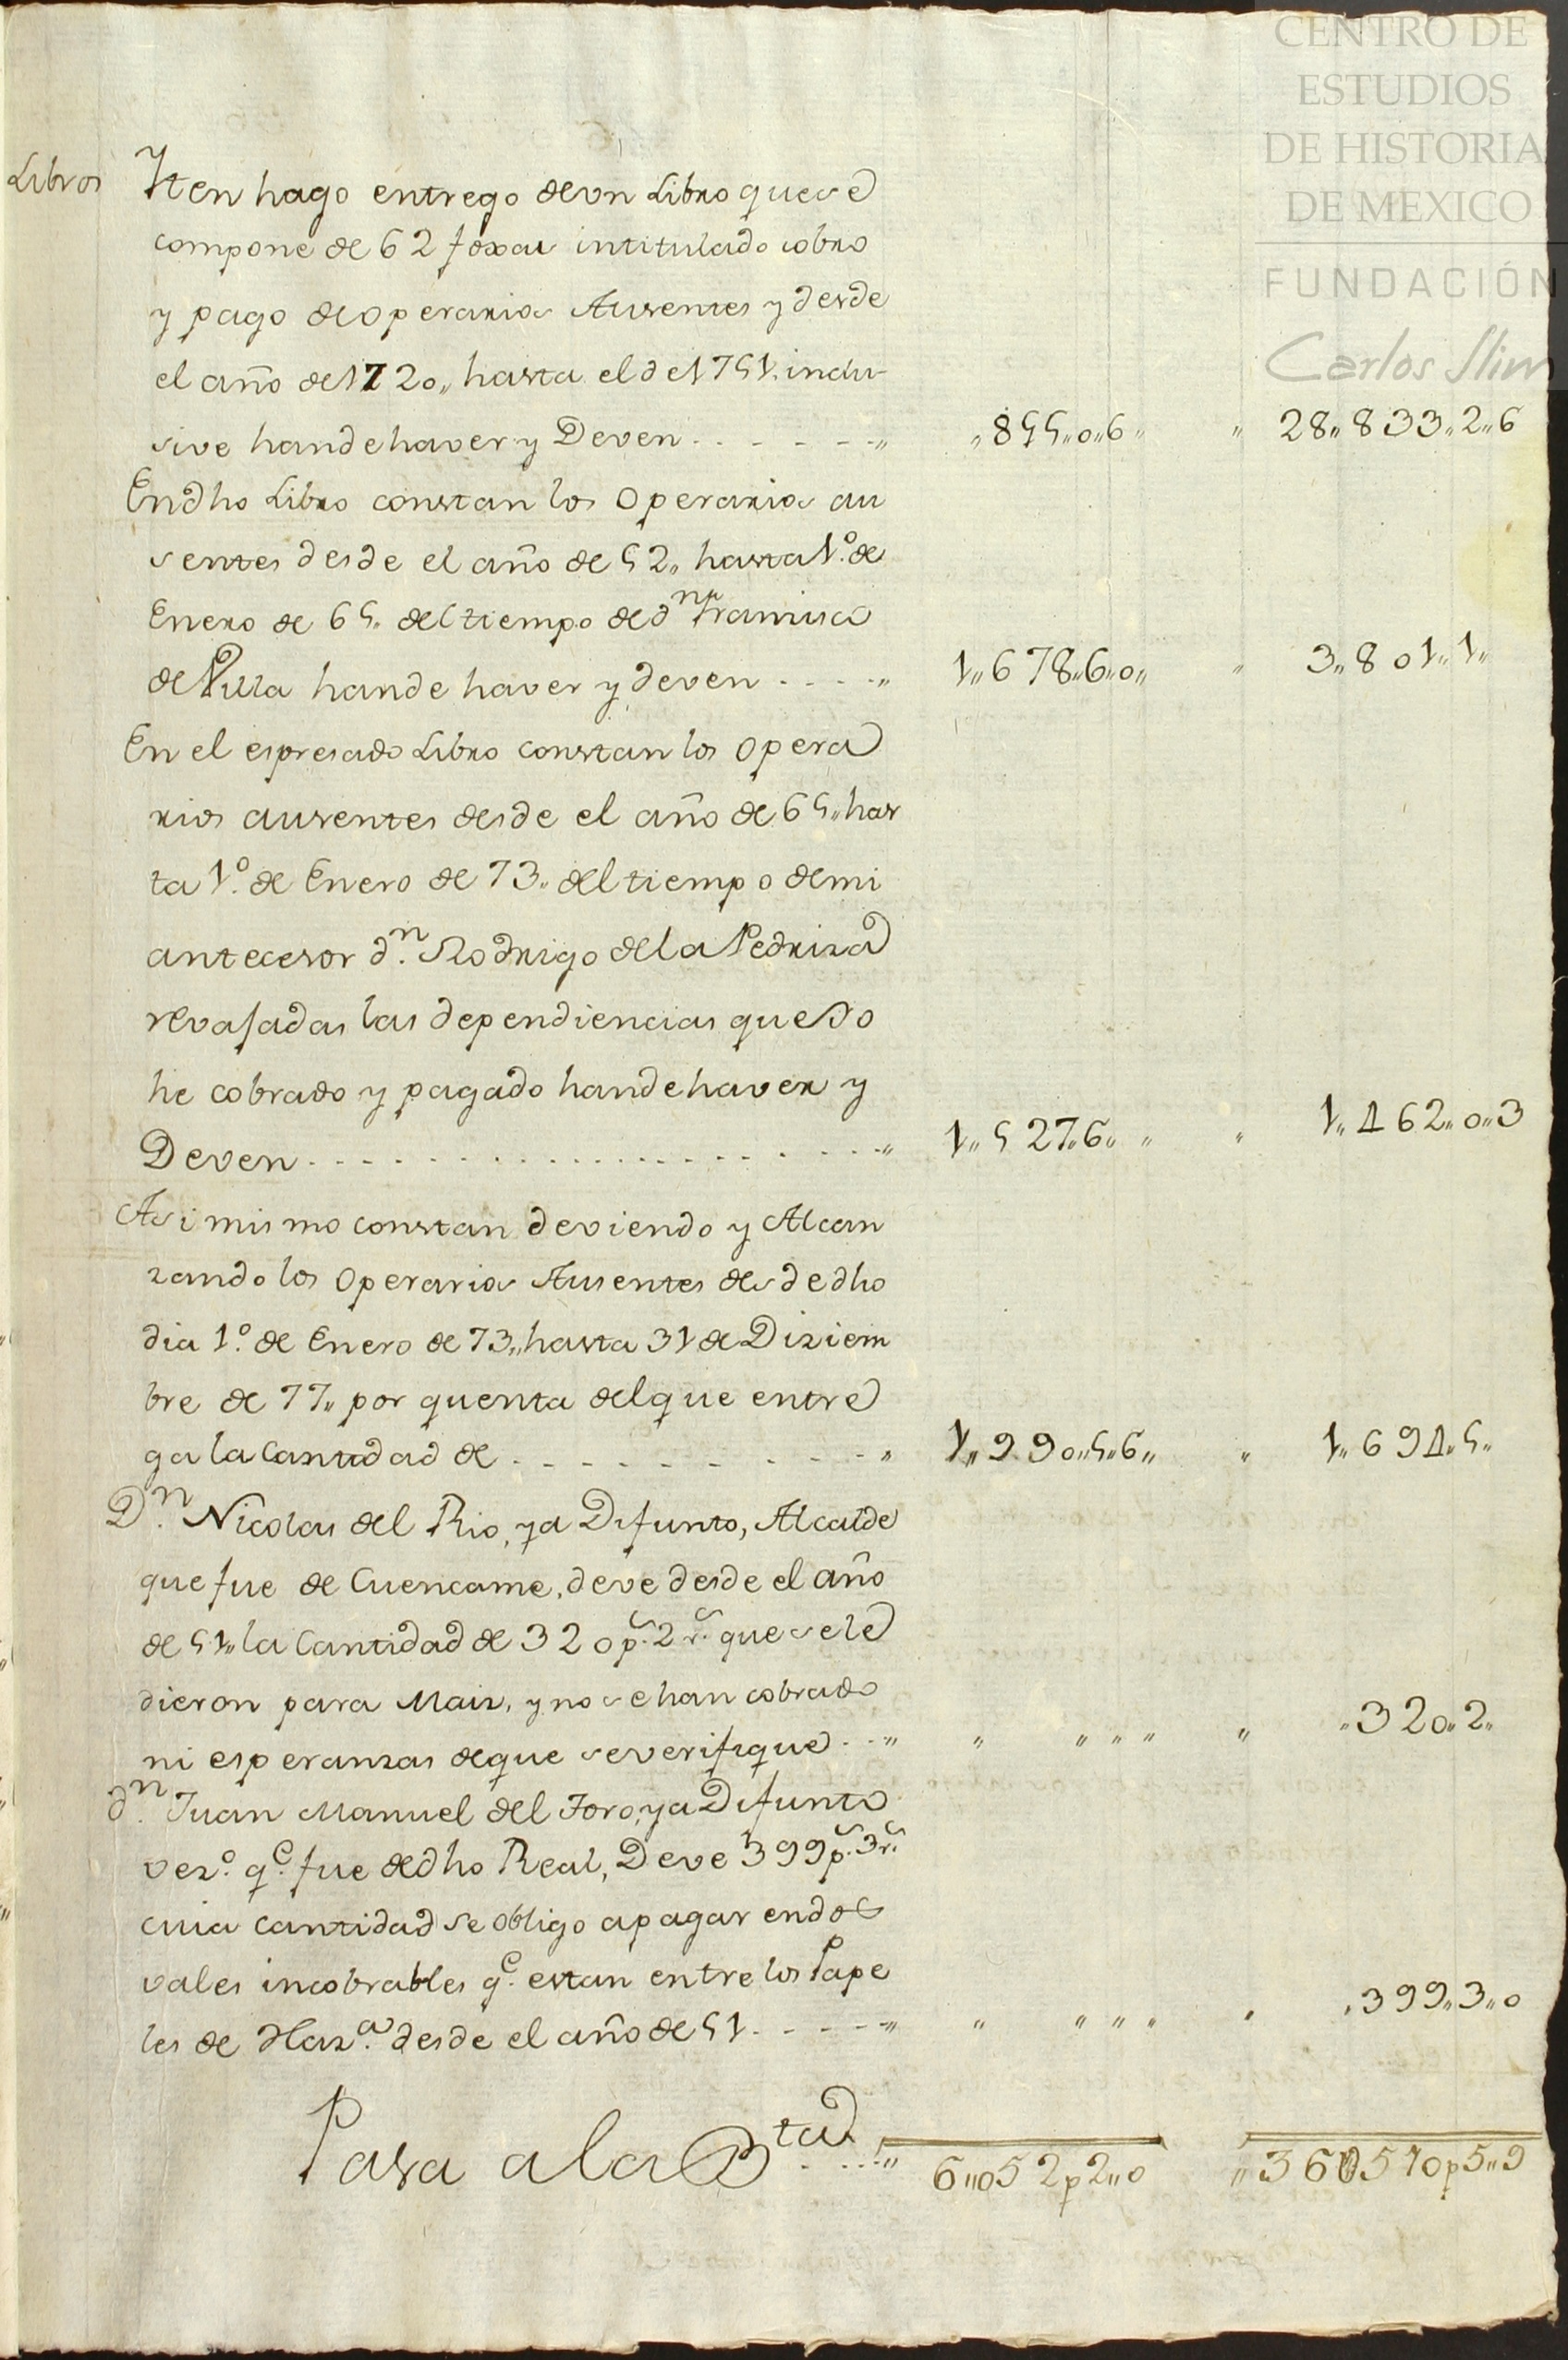 CENTRO DE
ESTUDIOS
DE HISTORIA
DE MEXICO
FUNDACIÓN
Carlos Slim
Libros Yten hago entrego de vn Libro que se
compone de 62 foxas intitulado cobro
y pago de operarios Ausentes y desde
el año de 1720,, hasta el de 1751. inclu-
sive han de haver y Deven - - - - - ,, ,,855,,0,,6,, ,, 28,,833,,2,,6
En dho Libro constan los Operarios au
sentes desde el año de 52,, hasta 1º. de
Enero de 65,, del tiempo de dn Francisco
de Villa han de haver y deven - - - - ,, 1,,678,,6,,0,, ,, 3,,801,,1,,
En el espresado Libro constan los Opera
rios ausentes desde el año de 65,, has
ta 1º. de Enero de 73,, del tiempo de mi
antecesor dn. Rodrigo de la Pedriza
revajadas las dependiencias que Yo
he cobrado y pagado han de haver y
Deven - - - - - - - - - - ,, 1,,527,,6,, ,, ,, 1,,462,,0,,3
Asi mismo constan deviendo y Alcan
zando los Operarios Ausentes desde dho
dia 1º. de Enero de 73,, hasta 31 de Diziem
bre de 77,, por quenta del que entre
ga la Cantidad de - - - - - - - ,, 1,,990,,5,,6,, ,, 1,,694,,5,,
Dn. Nicolas del Rio, ya Difunto, Alcalde
que fue de Cuencame, deve desde el año
de 51,, la Cantidad de 320 ps. 2 rs. que se le
dieron para Maiz, y no se han cobrado
ni esperanzas de que se verifique - - ,, ,, ,, ,, ,, ,, ,,320,,2,,
dn. Juan Manuel del Toro, ya Difunto
vezo. qe. fue de dho Real, Deve 399 ps. 3 rs.
cuia cantidad se obligo a pagar en dos
vales incobrables qe. estan entre los Pape
les de Haza. desde el año de 51 - - - - ,, ,, ,, ,, ,, ,, ,,399,,3,,0
Pasa a la Bta - - - ,, 6,,052p2,,0 ,,36U510p5,,9